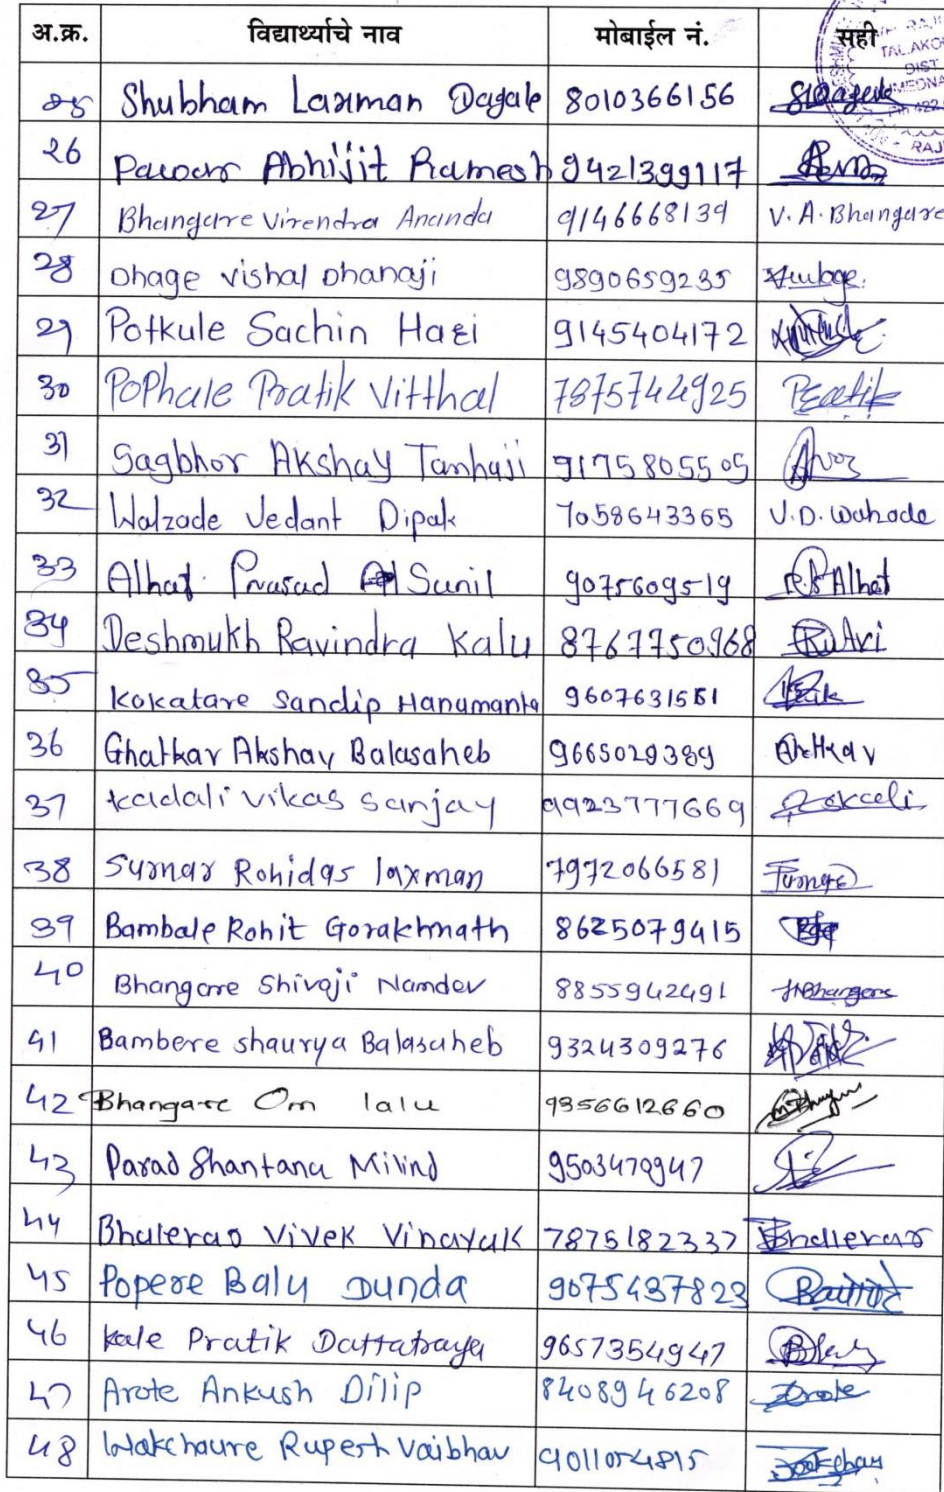 अ.क्र. विद्यार्थ्याचे नाव मोबाईल नं. सही
२५ Shubham Laxman Dagale 8010366156
26 Pawar Abhijit Ramesh 9421399117
27 Bhangare Virendra Ananda 9146668139 V. A. Bhangare
28 Dhage Vishal Dhanaji 9890659235
29 Potkule Sachin Hari 9145404172
30 Pophale Pratik Vitthal 7875744925 Pratik
31 Sagbhor Akshay Tanhaji 9175805505
32 Walzade Vedant Dipak 7058643365
33 Alhat Prasad Sunil 9075609519 Alhat
34 Deshmukh Ravindra Kalu 8767750968
35 Kokatare Sandip Hanamanta 9607631551
36 Ghatkar Akshay Balasaheb 9665029389
37 Kadali Vikas Sanjay 9923777669
38 Rohidas laxman 7972066581
39 Bambale Rohit Gorakhnath 8625079415
40 Bhangare Shivaji Namdev 8855942491
41 Bambere shaurya Balasaheb 9324309276
42 Bhangare Om lalu 9356612660
43 Parad Shantanu Milind 9503470947
44 Bhalerao Vivek Vinayak 7875182337 Bhalerao
45 Popere Balu Dunda 9075437823
46 Kale Pratik Dattatraya 9657354947
47 Arote Ankush Dilip 8408946208 Arote
48 Wakchaure Rupesh Vaibhav 9011054815